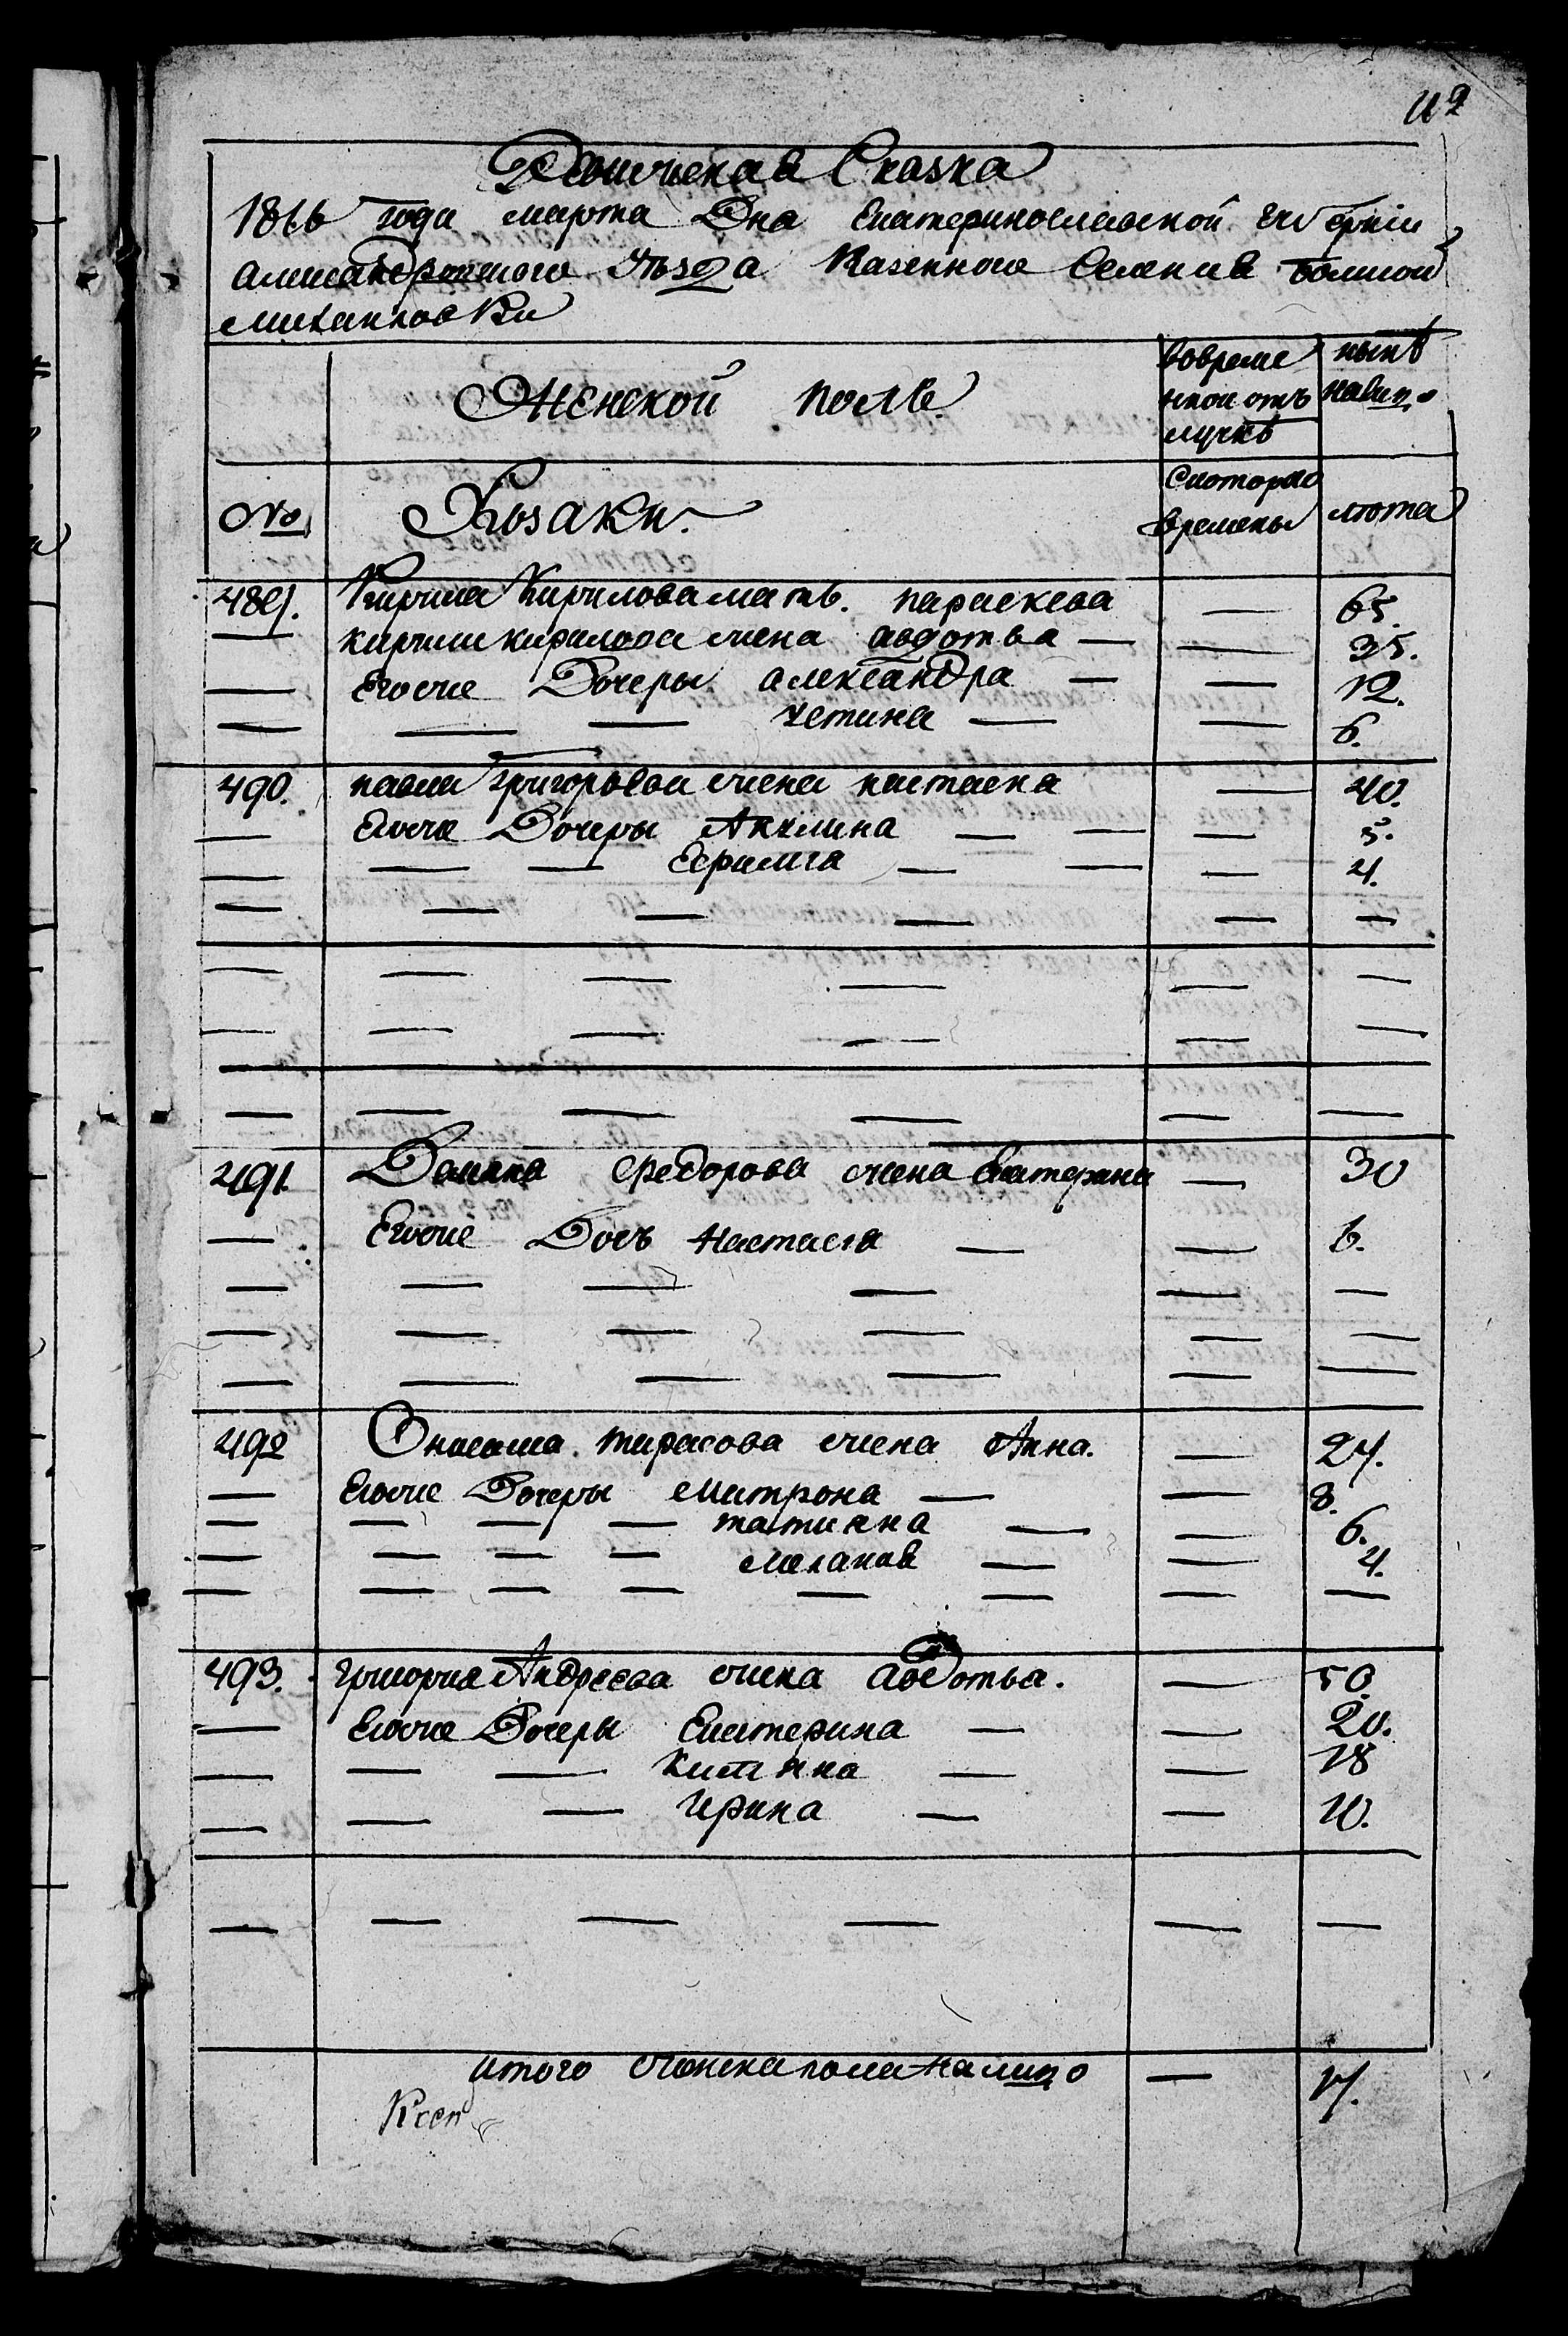 42
Ревижская Сказка
1816 года марта Дна Екатеринославской губернiи
Александровскаго Уѣзда Казенного Селения болшой
михаиловки
Женской полъ
вовреме
нной отъ
лучкѣ
нынѣ
налицо
№
Козаки.
Скоторае
времены
лѣта
489. Кирила Кирилова мать. параскева — 65.
— кирили кирилова жена авдотья — — 35.
— Егоже Дочеры александра — — 12.
— — — Устина — — 6.
490. павла григорьева жена настасия — 40.
— Егоже Дочеры Акулина — — — 5.
— — — Ефимия — — — 4.
— — — — — —
— — — — — —
— — — — — —
— — — — — —
491 Демяна Федорова жена Екатерина — 30
— Егоже Дочъ Настасия — — 6.
— — — — — —
— — — — — —
— — — — — —
492 тарасова жена Анна. — 27.
— Егоже Дочеры Матрона — — 8.
— — — — татияна — — 6.
— — — — мелания — — 4.
— — — — — — — —
493. григория Андреева жена авдотья. — 50.
— Егоже Дочеры Екатерина — — 20.
— — — — 18
— — — Ирина — — 10.
— — — — — —
итого женска пола налицо — 17.